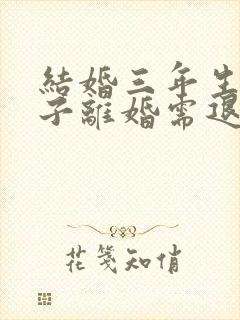 結婚三年生
子離婚需退
花箋知俏